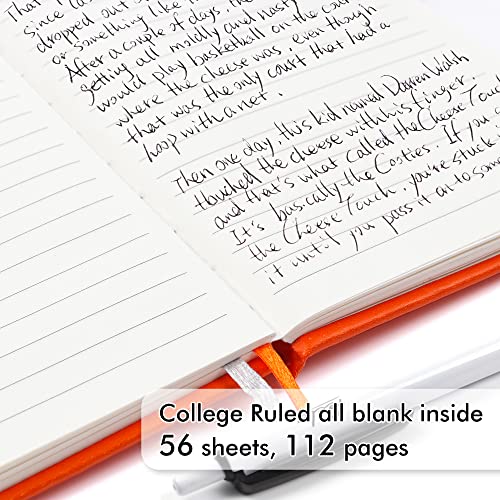 That
since
dropped out of
or something like
After a couple of days, the
getting all moldy and nasty
would play basketball on the court
where the cheese was, even though
that was the only court that had a
hoop with a net.
Then one day, this kid named Darren Walsh
touched the cheese with his finger,
and that's what called the Cheese Touch
It's basically the Cooties. If you
the Cheese Touch, you're stuck
it until you pass it on to some
College Ruled all blank inside
56 sheets, 112 pages